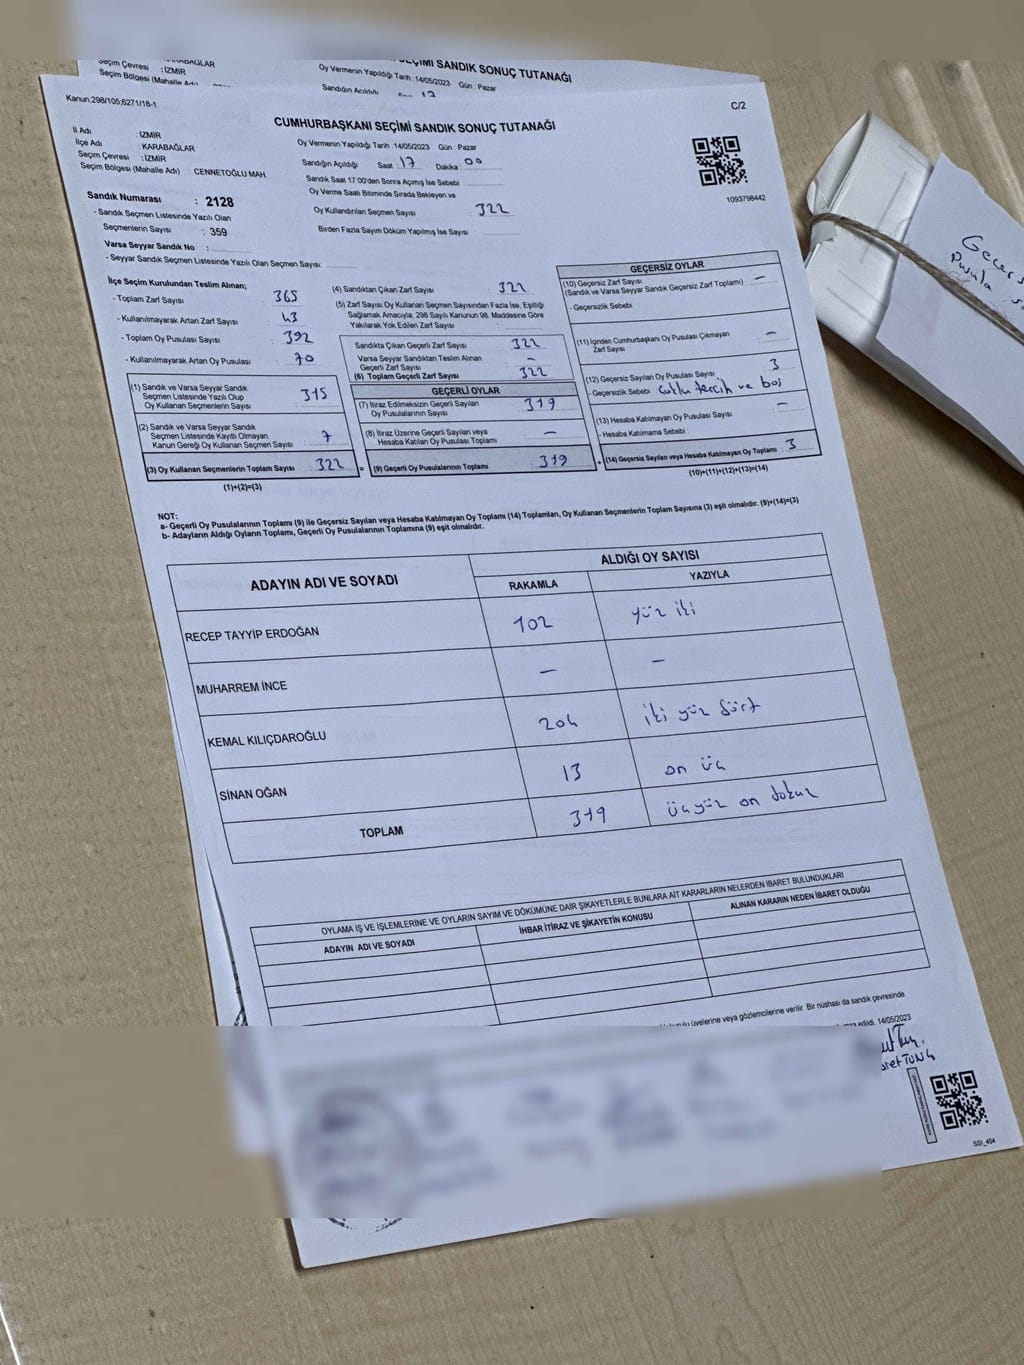 Seçim Çevresi : İZMİR
Seçim Bölgesi (Mahalle Adı)
SEÇİMİ SANDIK SONUÇ TUTANAĞI
Oy Vermenin Yapıldığı Tarih :14/05/2023 Gün : Pazar
Sandığın Açıldığı 17
Kanun:298/105;6271/18-1
C/2
CUMHURBAŞKANI SEÇİMİ SANDIK SONUÇ TUTANAĞI
İl Adı : İZMİR
İlçe Adı : KARABAĞLAR
Seçim Çevresi : İZMİR
Seçim Bölgesi (Mahalle Adı) : CENNETOĞLU MAH.
Oy Vermenin Yapıldığı Tarih :14/05/2023 Gün : Pazar
Sandığın Açıldığı Saat : 17 Dakika 00
Sandık Saat 17:00'den Sonra Açımış İse Sebebi
Oy Verme Saati Bitiminde Sırada Bekleyen ve
Oy Kullandırılan Seçmen Sayısı : 322
Birden Fazla Sayım Döküm Yapılmış İse Sayısı :
1093798442
Sandık Numarası : 2128
- Sandık Seçmen Listesinde Yazılı Olan
Seçmenlerin Sayısı : 359
Varsa Seyyar Sandık No :
- Seyyar Sandık Seçmen Listesinde Yazılı Olan Seçmen Sayısı:
İlçe Seçim Kurulundan Teslim Alınan;
- Toplam Zarf Sayısı : 365
- Kullanılmayarak Artan Zarf Sayısı : 43
- Toplam Oy Pusulası Sayısı : 392
- Kullanılmayarak Artan Oy Pusulası : 70
(1) Sandık ve Varsa Seyyar Sandık
Seçmen Listesinde Yazılı Olup
Oy Kullanan Seçmenlerin Sayısı : 315
(2) Sandık ve Varsa Seyyar Sandık
Seçmen Listesinde Kayıtlı Olmayan
Kanun Gereği Oy Kullanan Seçmen Sayısı : 7
(3) Oy Kullanan Seçmenlerin Toplam Sayısı : 322
(1)+(2)=(3)
(4) Sandıktan Çıkan Zarf Sayısı : 322
(5) Zarf Sayısı Oy Kullanan Seçmen Sayısından Fazla İse, Eşitliği
Sağlamak Amacıyla; 298 Sayılı Kanunun 98. Maddesine Göre
Yakılarak Yok Edilen Zarf Sayısı :
Sandıkta Çıkan Geçerli Zarf Sayısı : 322
Varsa Seyyar Sandıktan Teslim Alınan
Geçerli Zarf Sayısı : –
(6) Toplam Geçerli Zarf Sayısı : 322
GEÇERLİ OYLAR
(7) İtiraz Edilmeksizin Geçerli Sayılan
Oy Pusulalarının Sayısı : 319
(8) İtiraz Üzerine Geçerli Sayılan veya
Hesaba Katılan Oy Pusulası Toplamı : –
= (9) Geçerli Oy Pusulalarının Toplamı : 319
GEÇERSİZ OYLAR
(10) Geçersiz Zarf Sayısı
(Sandık ve Varsa Seyyar Sandık Geçersiz Zarf Toplamı) : –
- Geçersizlik Sebebi
(11) İçinden Cumhurbaşkanı Oy Pusulası Çıkmayan
Zarf Sayısı : –
(12) Geçersiz Sayılan Oy Pusulası Sayısı : 3
- Geçersizlik Sebebi Çoklu tercih ve boş
(13) Hesaba Katılmayan Oy Pusulası Sayısı : –
- Hesaba Katılmama Sebebi :
+ (14) Geçersiz Sayılan veya Hesaba Katılmayan Oy Toplamı : 3
(10)+(11)+(12)+(13)=(14)
NOT:
a- Geçerli Oy Pusulalarının Toplamı (9) ile Geçersiz Sayılan veya Hesaba Katılmayan Oy Toplamı (14) Toplamları, Oy Kullanan Seçmenlerin Toplam Sayısına (3) eşit olmalıdır. (9)+(14)=(3)
b- Adayların Aldığı Oyların Toplamı, Geçerli Oy Pusulalarının Toplamına (9) eşit olmalıdır.
ADAYIN ADI VE SOYADI
ALDIĞI OY SAYISI
RAKAMLA YAZIYLA
RECEP TAYYİP ERDOĞAN 102 yüz iki
MUHARREM İNCE – –
KEMAL KILIÇDAROĞLU 204 iki yüz dört
SİNAN OĞAN 13 on üç
TOPLAM 319 üçyüz on dokuz
OYLAMA İŞ VE İŞLEMLERİNE VE OYLARIN SAYIM VE DÖKÜMÜNE DAİR ŞİKAYETLERLE BUNLARA AİT KARARLARIN NELERDEN İBARET BULUNDUKLARI
ADAYIN ADI VE SOYADI İHBAR İTİRAZ VE ŞİKAYETİN KONUSU ALINAN KARARIN NEDEN İBARET OLDUĞU
üyelerine veya gözlemcilerine verilir. Bir nüshası da sandık çevresinde
edildi. 14/05/2023
SSI_404
Pusula